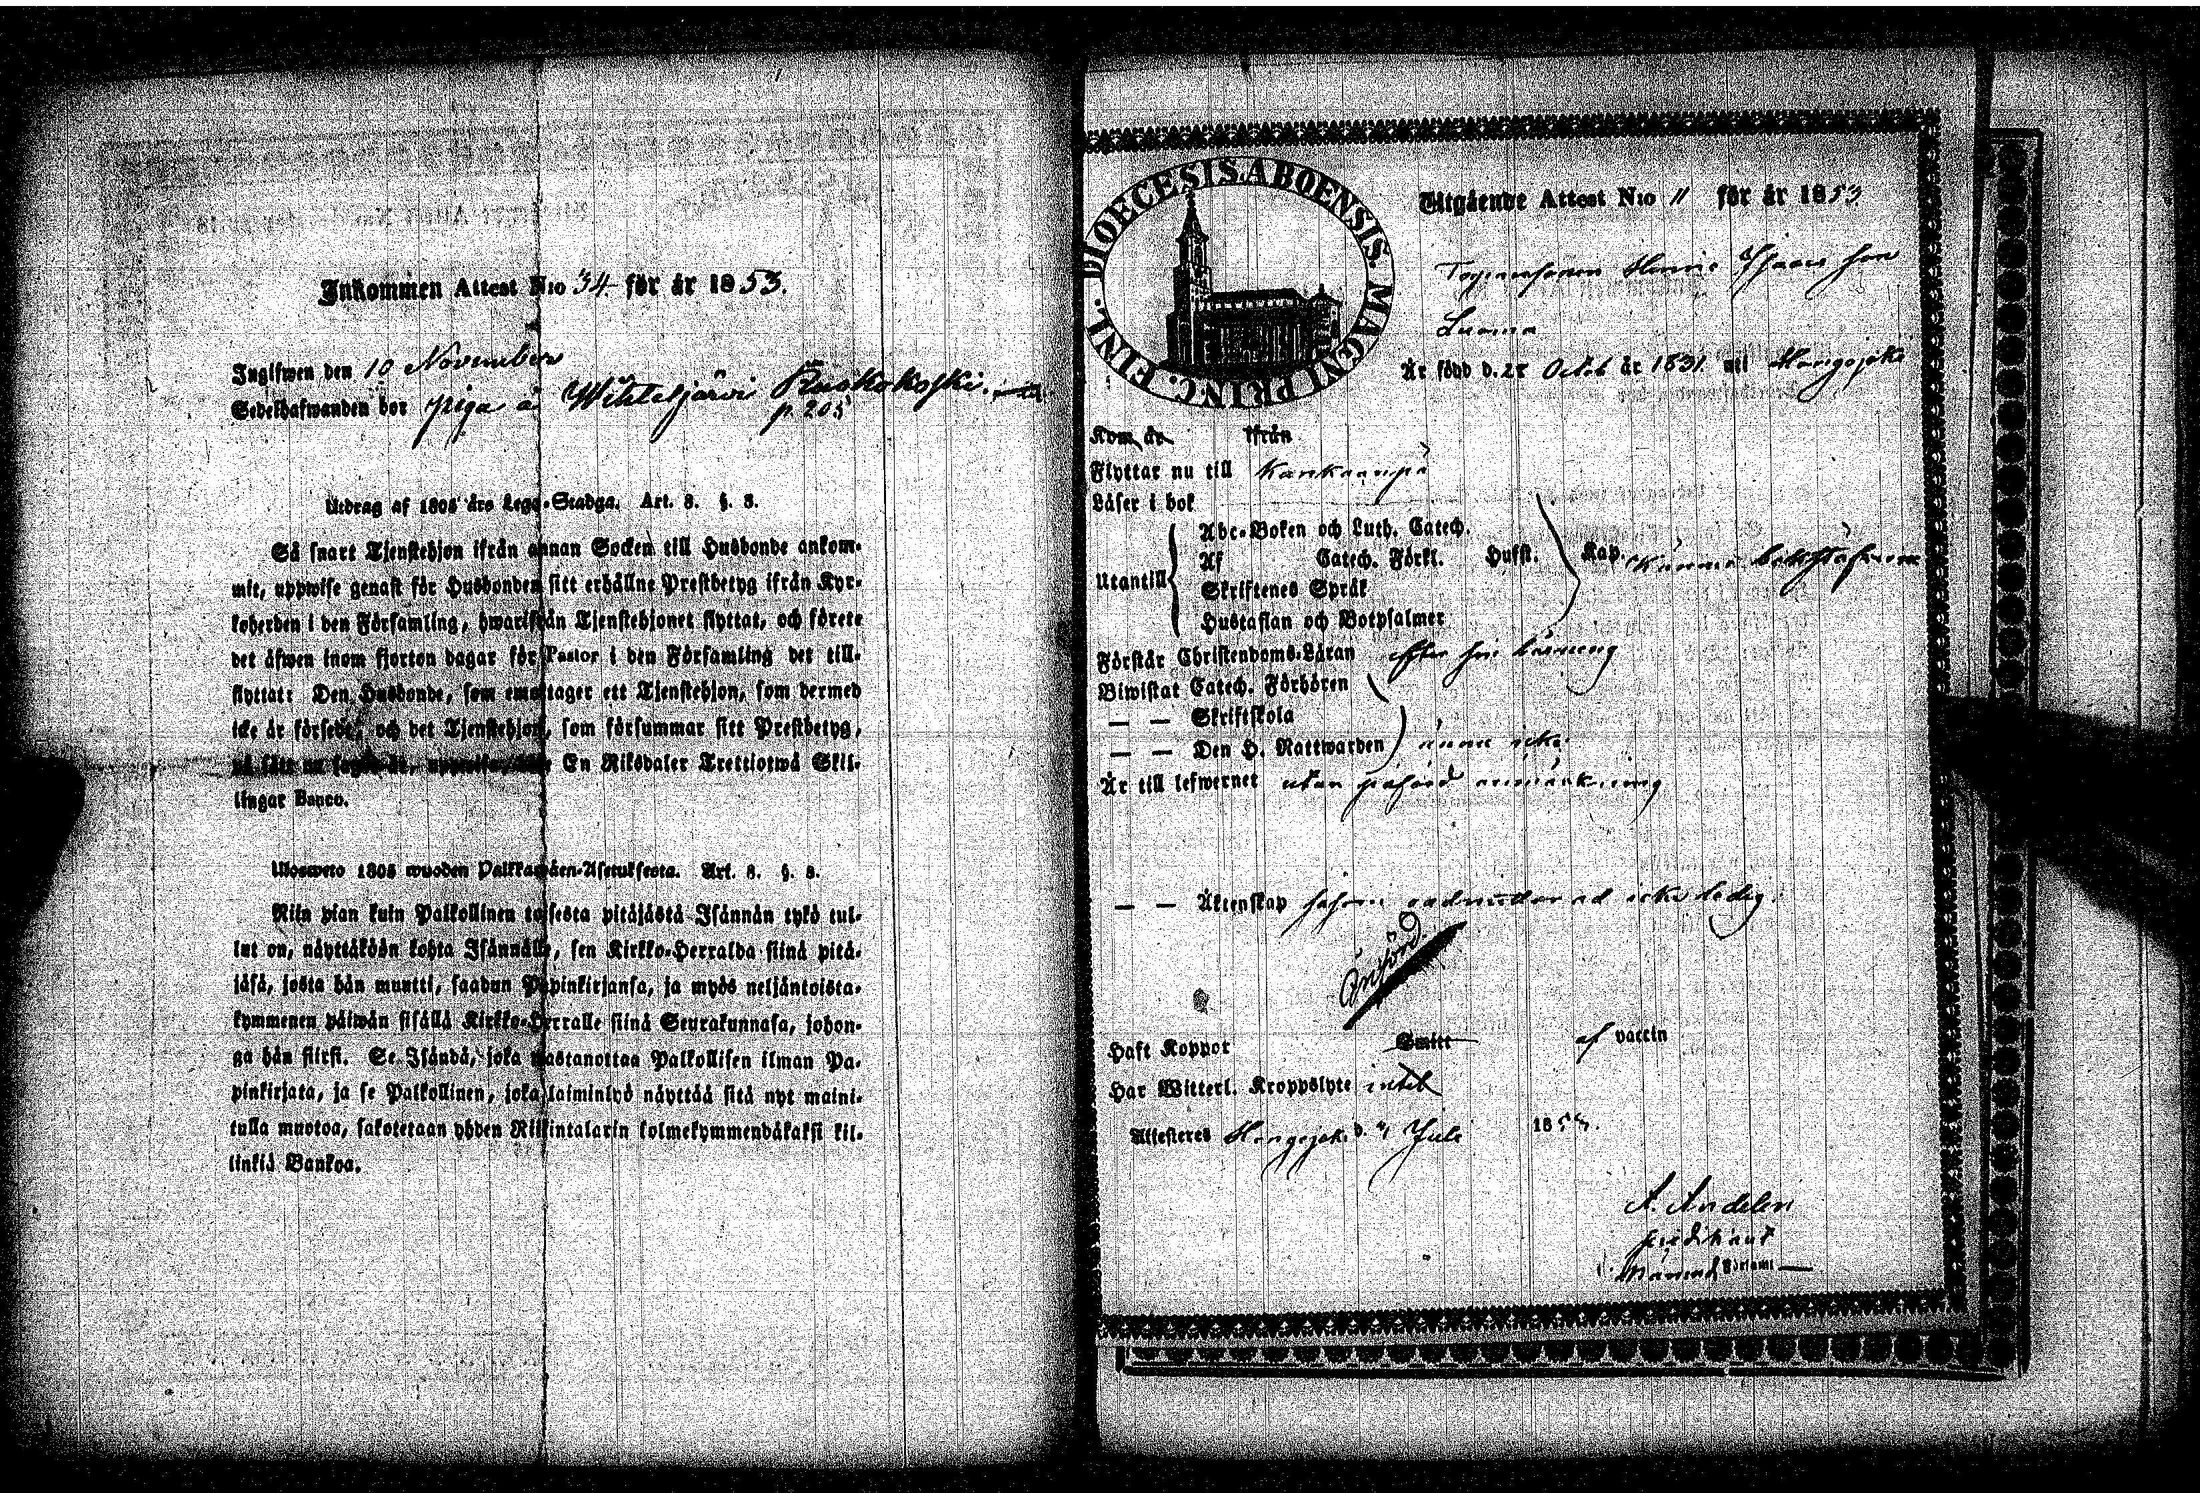 Inkommen Attest N:o 34 för år 1853.
Ingifwen den 10 November
Sedelhafwanden bor piga å Wihteljärvi Ruokokoski.
p. 205
Utdrag af 1805 års Lego-Stadga. Art. 3. §. 3.
Så snart Tjenstehjon ifrån annan Socken till Husbonde ankom-
mit, uppwise genast för Husbonden sitt erhållne Prestbetyg ifrån Kyr-
koherden i den Församling, hwarifrån Tjenstehjonet flyttat, och förete
det äfwen inom fjorton dagar för Pastor i den Församling det till-
flyttat: Den Husbonde, som emottager ett Tjenstehjon, som dermed
icke är försedt, och det Tjenstehjon, som försummar sitt Prestbetyg,
på sätt nu sagdt är, uppwisa, böte En Riksdaler Trettiotwå Skil-
lingar Banco.
Ulosweto 1805 wuoden Palkkawäen-Asetuksesta. Art. 3. §. 3.
Niin pian kuin Palkollinen toisesta pitäjästä Isännän tykö tul-
lut on, näyttäköön kohta Isännälle, sen Kirkko-Herralda siinä pitä-
jäsä, josta hän muutti, saadun Papinkirjansa, ja myös neljäntoista-
kymmenen päiwän sisällä Kirkko-Herralle siinä Seurakunnasa, johon-
ga hän siirsi. Se Isändä, joka wastanottaa Palkollisen ilman Pa-
pinkirjata, ja se Palkollinen, joka laiminlyö näyttää sitä nyt maini-
tulla muotoa, sakotetaan yhden Riikintalarin kolmekymmendäkaksi kil-
linkiä Bankoa.
DIOECESIS. ABOENSIS. MAGNI PRINC. FINL.
Utgående Attest N:o 11 för år 1853
Isaacs son
Luoma
Är född d. 2r Octob år 1831 uti Hongojoki
Kom år ifrån
Flyttar nu till Kankaanpä
Läser i bok
Abc-Boken och Luth. Catech.
Utantill Af Catech. Förkl. Husst. Kap. känner bokstäfverne
Skriftenes Språk
Hustaflan och Botpsalmer
Förstår Christendoms-Läran efter sin läsning
Biwistat Catech. Förhören
— — Skriftskola
— — Den H. Nattwarden ännu icke.
Är till lefwernet utan påförd anmärkning
— — Äktenskap såsom oadmitterad icke ledig.
Anförd.
Haft Koppor Smitt af vaccin
Har Witterl. Kroppslyte intet
Attesteras Hongojoki d. 4 Juli 1853.
A. Andelin
predikant